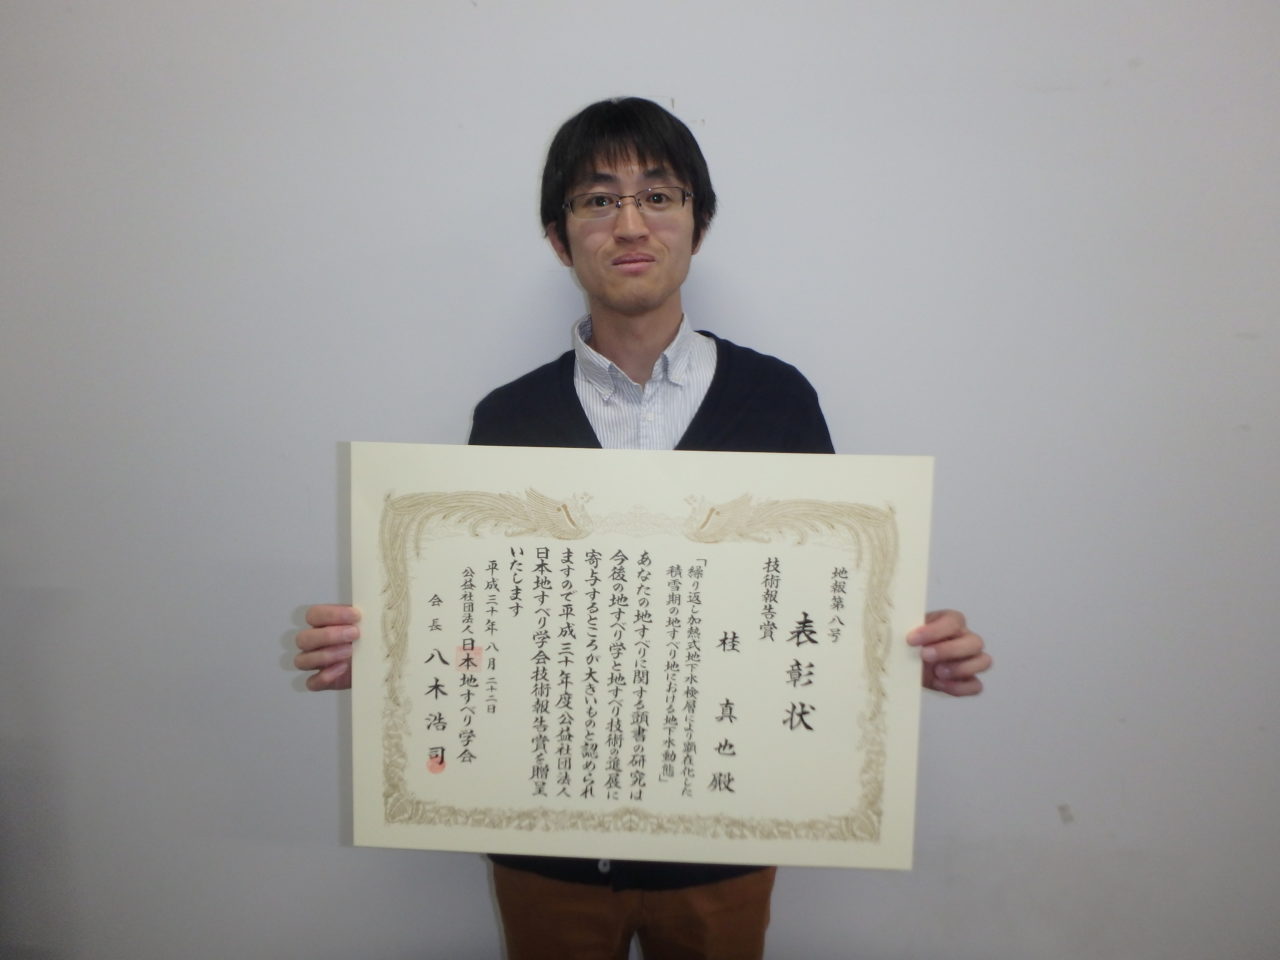 地報第八号
表彰状
技術報告賞
桂 真也殿
「繰り返し加熱式地下水検層により顕在化した
積雪期の地すべり地における地下水動態」
あなたの地すべりに関する頭書の研究は
今後の地すべり学と地すべり技術の進展に
寄与するところが大きいものと認められ
ますので平成三十年度公益社団法人
日本地すべり学会技術報告賞を贈呈
いたします
平成三十年八月二十二日
公益社団法人日本地すべり学会
会長 八木浩司